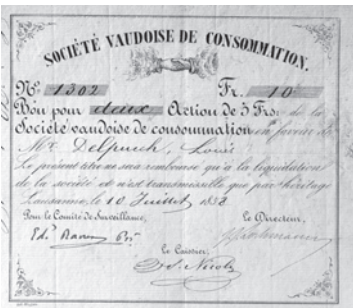 SOCIÉTÉ VAUDOISE DE CONSOMMATION.
No. 1302 Fr. 10
Bon pour deux Action de 5 Frs: de la
Société vaudoise de consommation en faveur de
Mr. Delpuech, Louis
Le présent titre ne sera remboursé qu'à la liquidation
de la société et n'est transmissible que par héritage
Lausanne, le 10 Juillet 18
Pour le Comité de Surveillance, le Directeur,
Le Caissier,